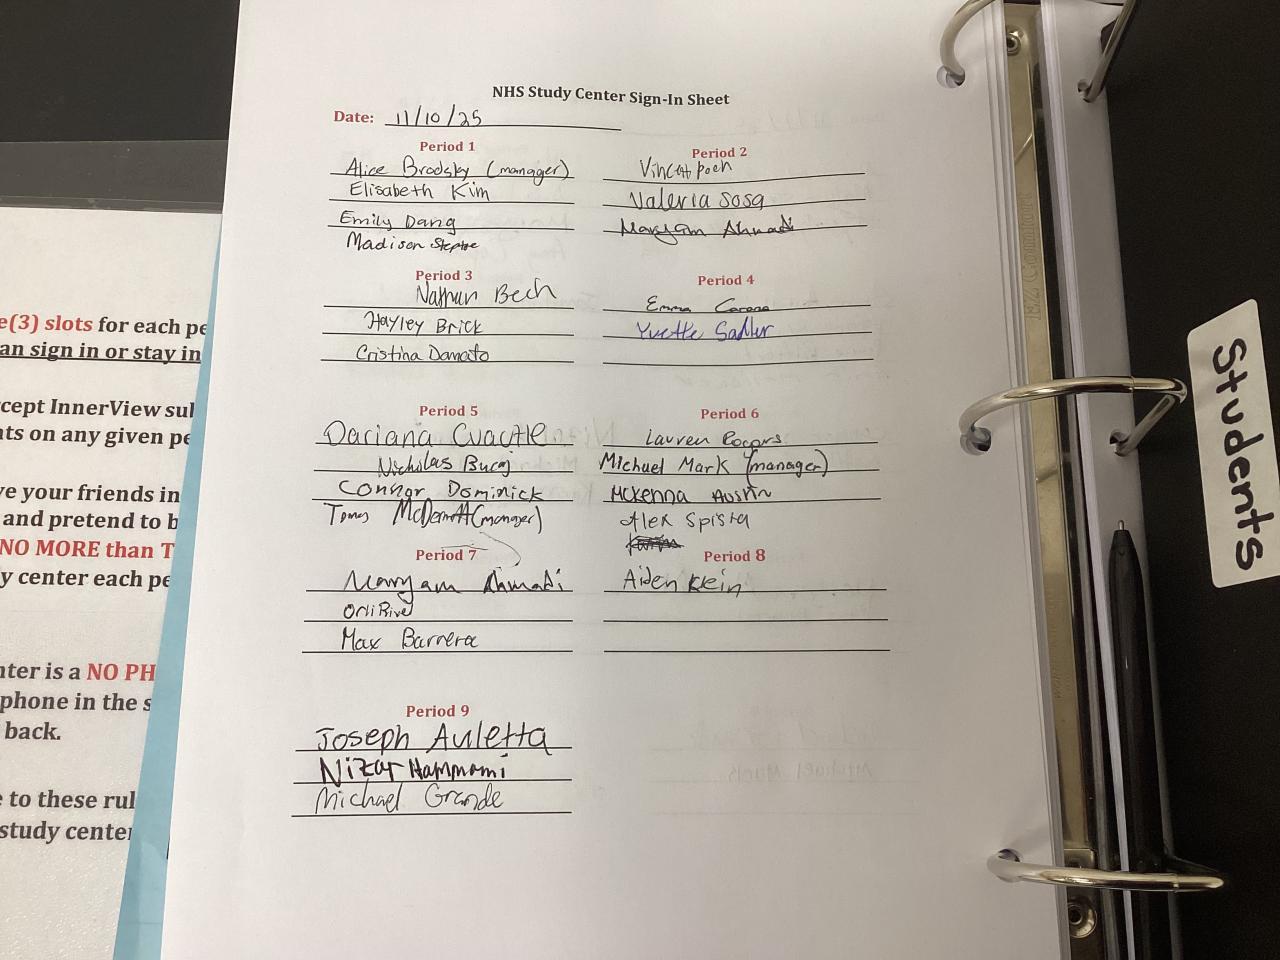 NHS Study Center Sign-In Sheet
Date: 11/10/25
Period 1
Alice Brodsky (manager)
Elisabeth Kim
Emily Dang
Madison Steptoe
Period 2
Vincent
Valeria Sosa
Maryam Ahmadi
Period 3
Nathan Bech
Hayley Brick
Cristina Damato
Period 4
Emma Corona
Yvette Sadler
Period 5
Dariana Cuactle
Nicholas Bucaj
Connor Dominick
McDermott (manager)
Period 6
Lauren Rogers
Michael Mark (manager)
McKenna Austin
Alex Spista
Period 7
Maryam Ahmadi
Orli
Max Barrera
Period 8
Aiden Klein
Period 9
Joseph Auletta
Nizar Hammami
Michael Grande
e(3) slots for each pe
an sign in or stay in
cept InnerView sul
nts on any given pe
ve your friends in
and pretend to b
NO MORE than T
y center each pe
nter is a NO PH
phone in the s
back.
e to these rul
study center
Students